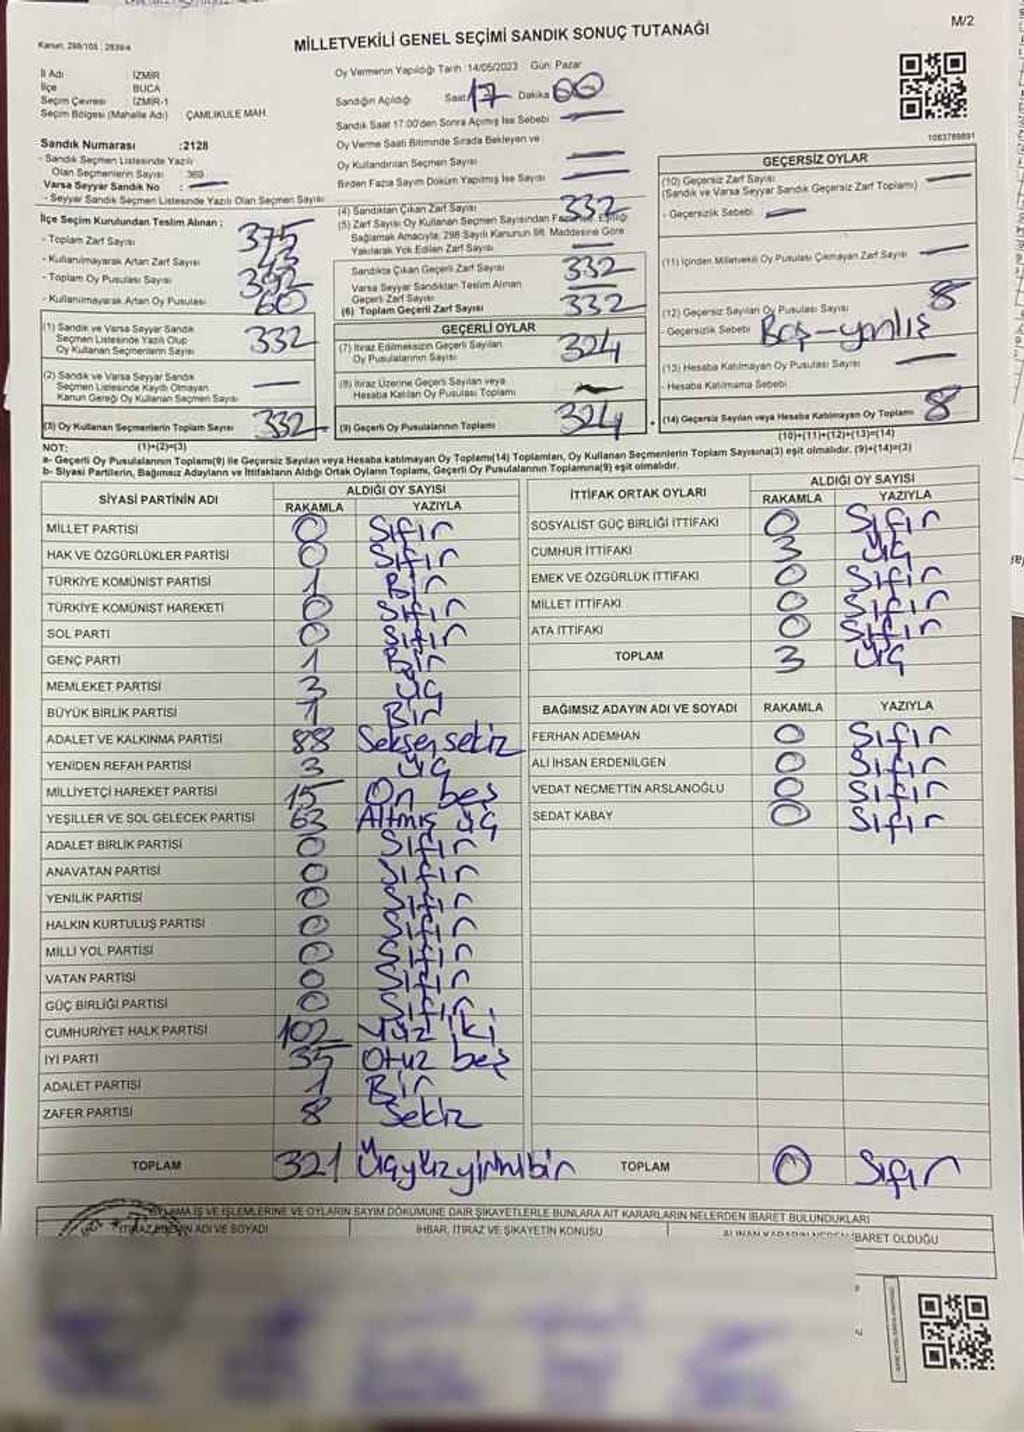 M/2
MİLLETVEKİLİ GENEL SEÇİMİ SANDIK SONUÇ TUTANAĞI
İl Adı : İZMİR
İlçe : BUCA
Seçim Çevresi : İZMİR-1
Seçim Bölgesi (Mahalle Adı) : ÇAMLIKULE MAH.
Sandık Numarası :2128
- Sandık Seçmen Listesinde Yazılı
Olan Seçmenlerin Sayısı : 369
Varsa Seyyar Sandık No :
- Seyyar Sandık Seçmen Listesinde Yazılı Olan Seçmen Sayısı
İlçe Seçim Kurulundan Teslim Alınan :
- Toplam Zarf Sayısı 375
- Kullanılmayarak Artan Zarf Sayısı 43
- Toplam Oy Pusulası Sayısı 392
- Kullanılmayarak Artan Oy Pusulası 60
(1) Sandık ve Varsa Seyyar Sandık
Seçmen Listesinde Yazılı Olup
Oy Kullanan Seçmenlerin Sayısı 332
(2) Sandık ve Varsa Seyyar Sandık
Seçmen Listesinde Kayıtlı Olmayan
Kanun Gereği Oy Kullanan Seçmen Sayısı
(3) Oy Kullanan Seçmenlerin Toplam Sayısı 332
(1)+(2)=(3)
Oy Vermenin Yapıldığı Tarih :14/05/2023 Gün: Pazar
Sandığın Açıldığı Saat 17 Dakika 00
Sandık Saat 17:00'den Sonra Açılmış İse Sebebi
Oy Verme Saati Bitiminde Sırada Bekleyen ve
Oy Kullandırılan Seçmen Sayısı
Birden Fazla Sayım Döküm Yapılmış İse Sayısı
(4) Sandıktan Çıkan Zarf Sayısı 332
(5) Zarf Sayısı Oy Kullanan Seçmen Sayısından Fazla İse, Eşitliği
Sağlamak Amacıyla; 298 Sayılı Kanunun 98. Maddesine Göre
Yakılarak Yok Edilen Zarf Sayısı
Sandıkta Çıkan Geçerli Zarf Sayısı 332
Varsa Seyyar Sandıktan Teslim Alınan
Geçerli Zarf Sayısı
(6) Toplam Geçerli Zarf Sayısı 332
GEÇERLİ OYLAR
(7) İtiraz Edilmeksizin Geçerli Sayılan
Oy Pusulalarının Sayısı 324
(8) İtiraz Üzerine Geçerli Sayılan veya
Hesaba Katılan Oy Pusulası Toplamı
(9) Geçerli Oy Pusulalarının Toplamı 324
1083789891
GEÇERSİZ OYLAR
(10) Geçersiz Zarf Sayısı
(Sandık ve Varsa Seyyar Sandık Geçersiz Zarf Toplamı)
- Geçersizlik Sebebi
(11) İçinden Milletvekili Oy Pusulası Çıkmayan Zarf Sayısı
(12) Geçersiz Sayılan Oy Pusulası Sayısı 8
- Geçersizlik Sebebi Boş-yanlış
(13) Hesaba Katılmayan Oy Pusulası Sayısı
- Hesaba Katılmama Sebebi
(14) Geçersiz Sayılan veya Hesaba Katılmayan Oy Toplamı 8
(10)+(11)+(12)+(13)=(14)
NOT:
a- Geçerli Oy Pusulalarının Toplamı(9) ile Geçersiz Sayılan veya Hesaba katılmayan Oy Toplamı(14) Toplamları, Oy Kullanan Seçmenlerin Toplam Sayısına(3) eşit olmalıdır. (9)+(14)=(3)
b- Siyasi Partilerin, Bağımsız Adayların ve İttifakların Aldığı Ortak Oyların Toplamı, Geçerli Oy Pusulalarının Toplamına(9) eşit olmalıdır.
SİYASİ PARTİNİN ADI ALDIĞI OY SAYISI
RAKAMLA YAZIYLA
MİLLET PARTİSİ 0 Sıfır
HAK VE ÖZGÜRLÜKLER PARTİSİ 0 Sıfır
TÜRKİYE KOMÜNİST PARTİSİ 1 Bir
TÜRKİYE KOMÜNİST HAREKETİ 0 Sıfır
SOL PARTİ 0 Sıfır
GENÇ PARTİ 1 Bir
MEMLEKET PARTİSİ 3 Üç
BÜYÜK BİRLİK PARTİSİ 1 Bir
ADALET VE KALKINMA PARTİSİ 88 Seksen sekiz
YENİDEN REFAH PARTİSİ 3 Üç
MİLLİYETÇİ HAREKET PARTİSİ 15 On beş
YEŞİLLER VE SOL GELECEK PARTİSİ 63 Altmış üç
ADALET BİRLİK PARTİSİ 0 Sıfır
ANAVATAN PARTİSİ 0 Sıfır
YENİLİK PARTİSİ 0 Sıfır
HALKIN KURTULUŞ PARTİSİ 0 Sıfır
MİLLİ YOL PARTİSİ 0 Sıfır
VATAN PARTİSİ 0 Sıfır
GÜÇ BİRLİĞİ PARTİSİ 0 Sıfır
CUMHURİYET HALK PARTİSİ 102 Yüz iki
İYİ PARTİ 35 Otuz beş
ADALET PARTİSİ 1 Bir
ZAFER PARTİSİ 8 Sekiz
TOPLAM 321 Üçyüzyirmibir
İTTİFAK ORTAK OYLARI ALDIĞI OY SAYISI
RAKAMLA YAZIYLA
SOSYALİST GÜÇ BİRLİĞİ İTTİFAKI 0 Sıfır
CUMHUR İTTİFAKI 3 Üç
EMEK VE ÖZGÜRLÜK İTTİFAKI 0 Sıfır
MİLLET İTTİFAKI 0 Sıfır
ATA İTTİFAKI 0 Sıfır
TOPLAM 3 Üç
BAĞIMSIZ ADAYIN ADI VE SOYADI RAKAMLA YAZIYLA
FERHAN ADEMHAN 0 Sıfır
ALİ İHSAN ERDENİLGEN 0 Sıfır
VEDAT NECMETTİN ARSLANOĞLU 0 Sıfır
SEDAT KABAY 0 Sıfır
TOPLAM 0 Sıfır
OYLAMA İŞ VE İŞLEMLERİNE VE OYLARIN SAYIM DÖKÜMÜNE DAİR ŞİKAYETLERLE BUNLARA AİT KARARLARIN NELERDEN İBARET BULUNDUKLARI
ADI VE SOYADI
İHBAR, İTİRAZ VE ŞİKAYETİN KONUSU
İBARET OLDUĞU